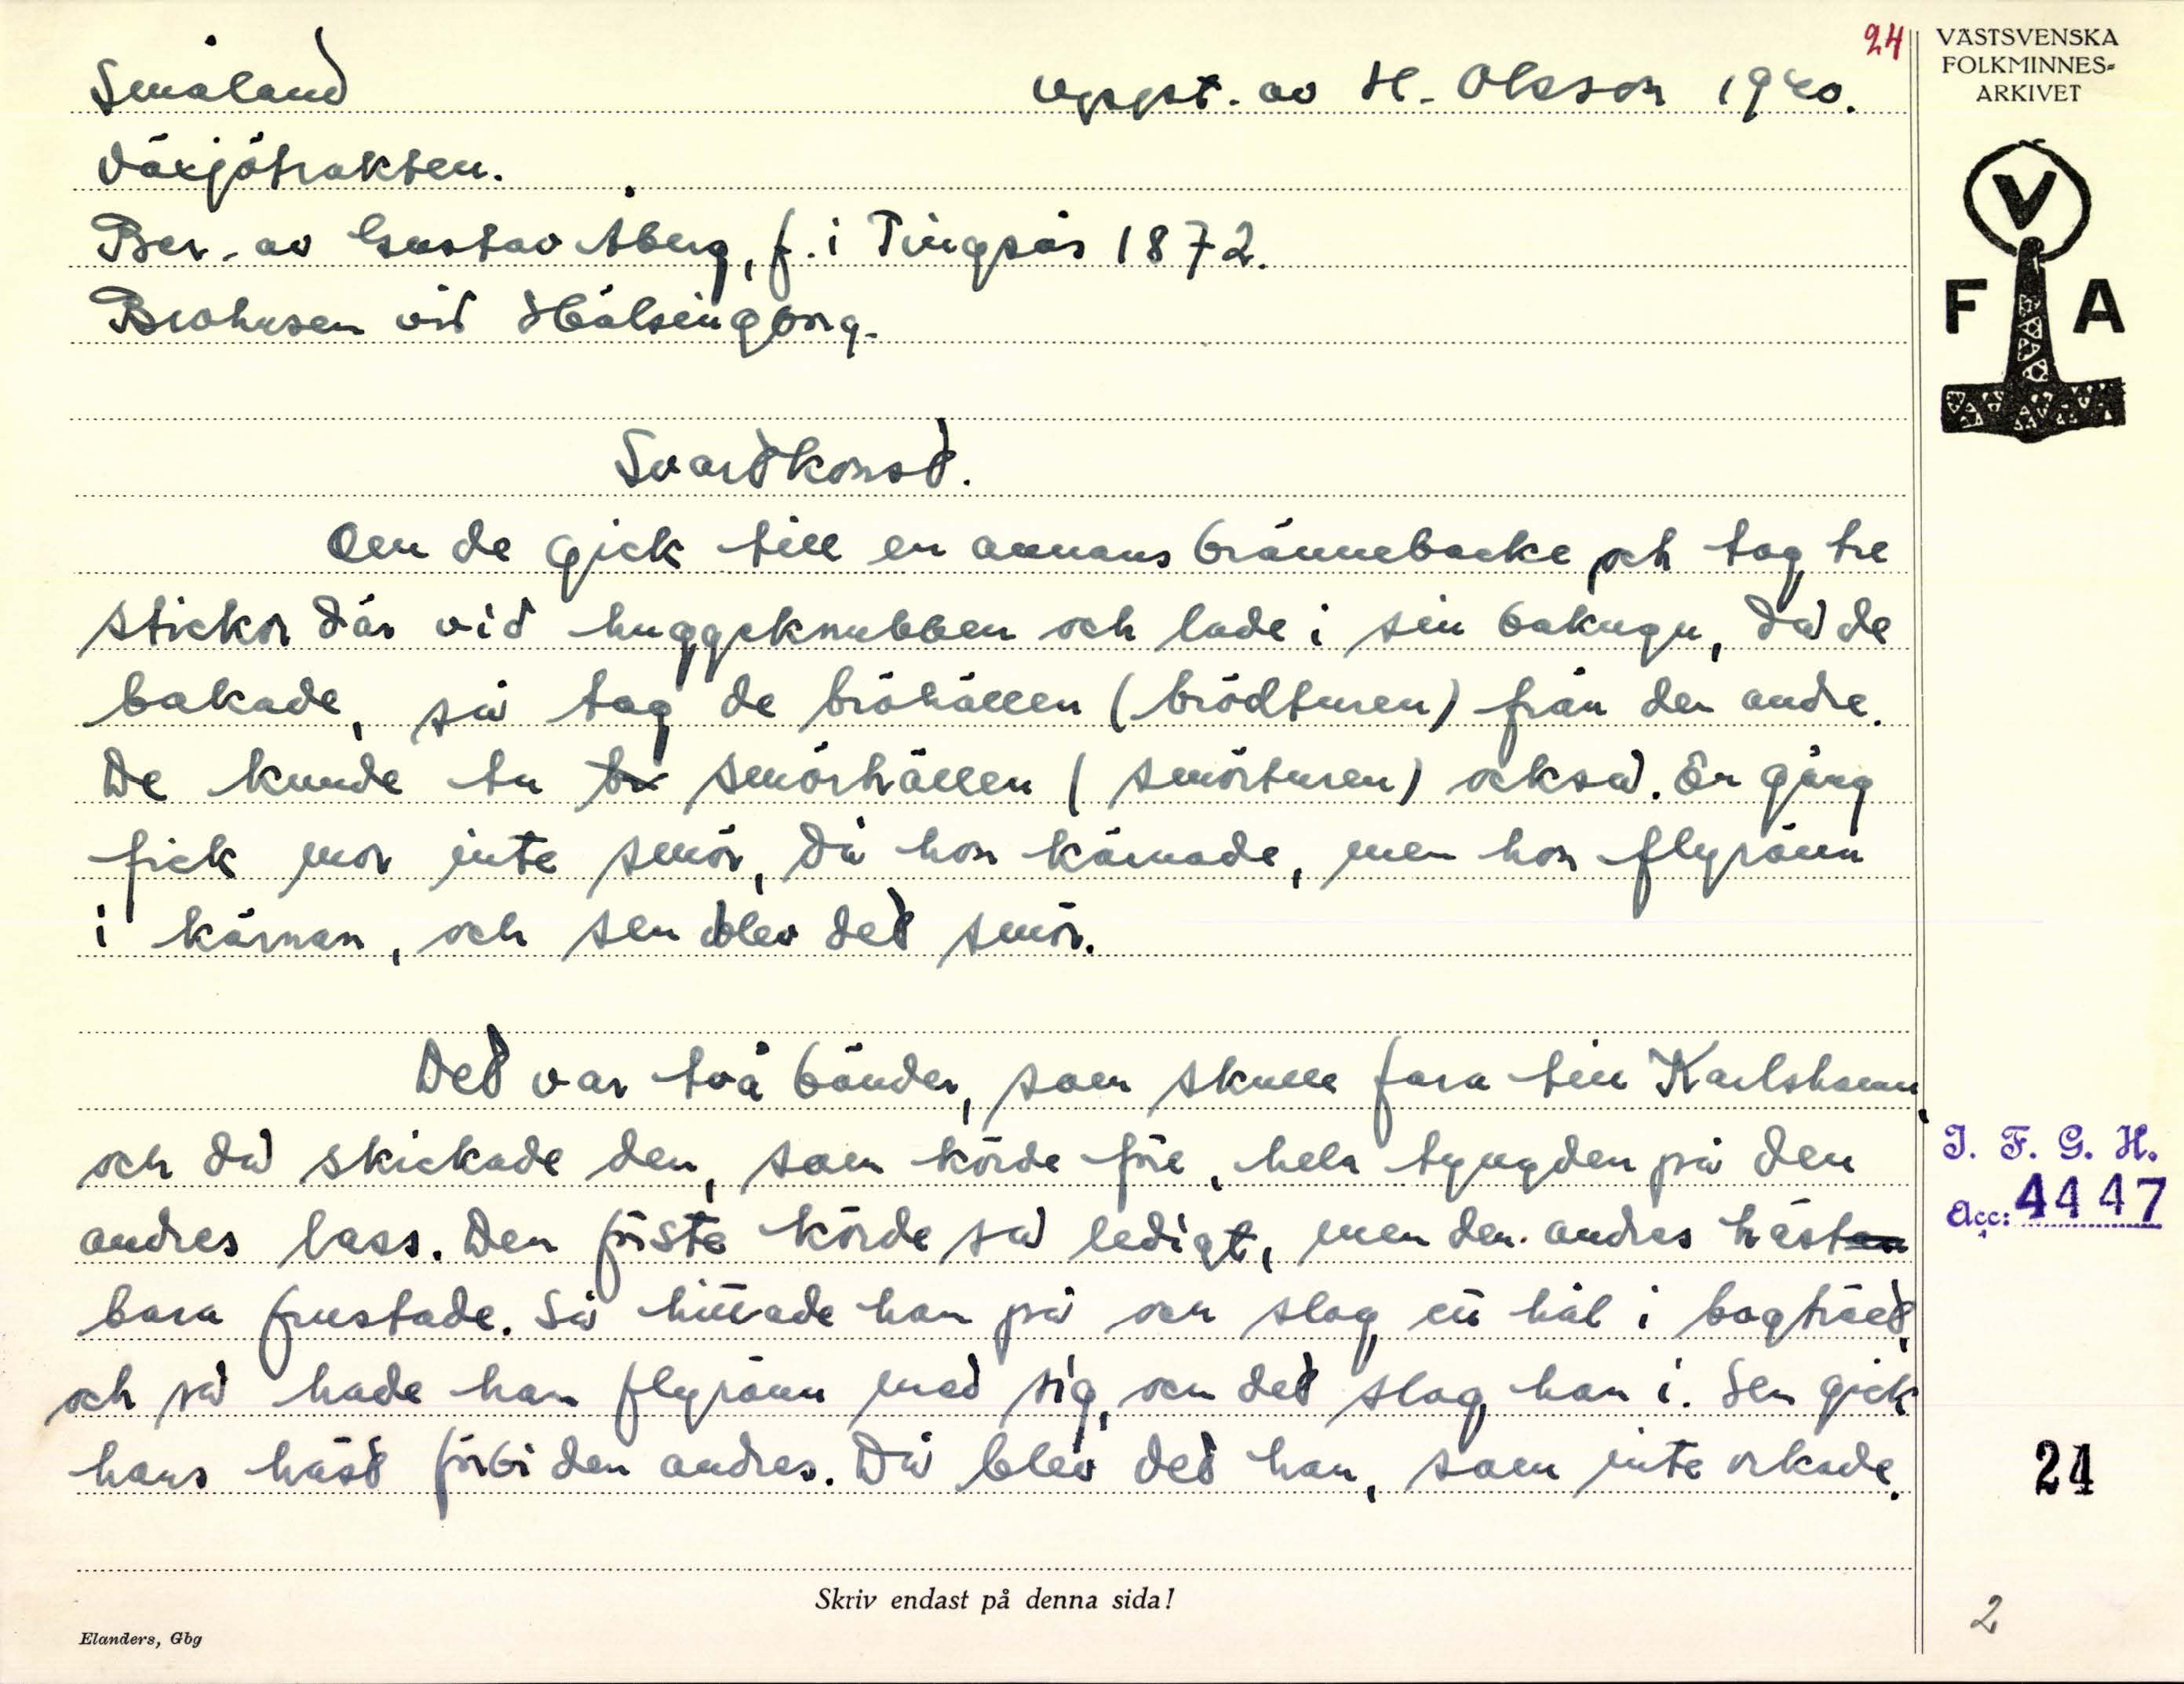 24
VÄSTSVENSKA
FOLKMINNES-
ARKIVET
V
F A
Småland
Uppst. av H. Olsson 1940.
Växjötrakten.
Ber. av Gustav Åberg, f. i Tingsås 1872.
Brohusen vid Hälsingborg.
Svartkonst.
Om de gick till en annans brännebacke och tog tre
stickor där vid huggeknubben och lade i sin bakugn, då de
bakade, så tog de bröhällen (brödturen) från den andre.
De kunde ta br smörhällen (smörturen) också. En gång
fick mor inte smör, då hon kärnade, men hon flyrönn
i kärnan, och sen blev det smör.
Det var två bönder, som skulle fara till Karlshamn,
och då skickade den, som körde före, hela tyngden på den
andres lass. Den förste körde så ledigt, men den andres hästen
bara frustade. Så hittade han på och slog ett hål i bogträet,
och så hade han flyrönn med sig, och det slog han i. Sen gick
hans häst förbi den andres. Då blev det han, som inte orkade.
I. F. G. H.
Acc: 4447
24
2
Skriv endast på denna sida!
Elanders, Gbg